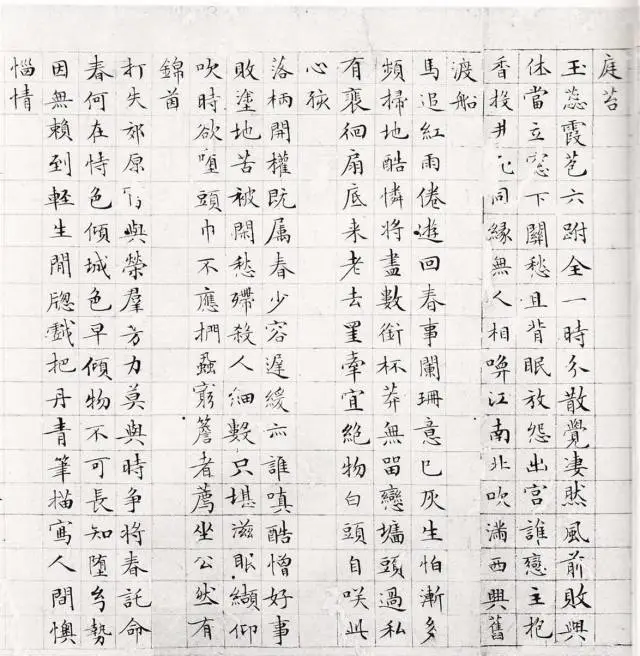 庭苔
玉蕊霞苞六跗全一時分散覺凄然風前敗興
休當立窓下關愁且背眠放怨出宮誰戀主抱
香投井死同緣無人相喚江南北吹滿西興舊
渡船
馬追紅雨倦遊回春事闌珊意已灰生怕漸多
頻掃地酷憐將盡數銜杯莽無留戀墻頭過私
有裵徊扇底来老去罣牽宜絶物白頭自咲此
心孩
落柄開權既属春少容遲緩亦誰嗔酷憎好事
敗塗地苦被閑愁殢殺人細數只堪滋眼纈仰
吹時欲墮頭巾不應捫蝨窮簷者薦坐公然有
錦茵
打失郊原與榮羣芳力莫與時爭將春託命
春何在恃色傾城色早傾物不可長知墮兮勢
因無賴到輕生閒牕戲把丹青筆描寫人間懊
惱情